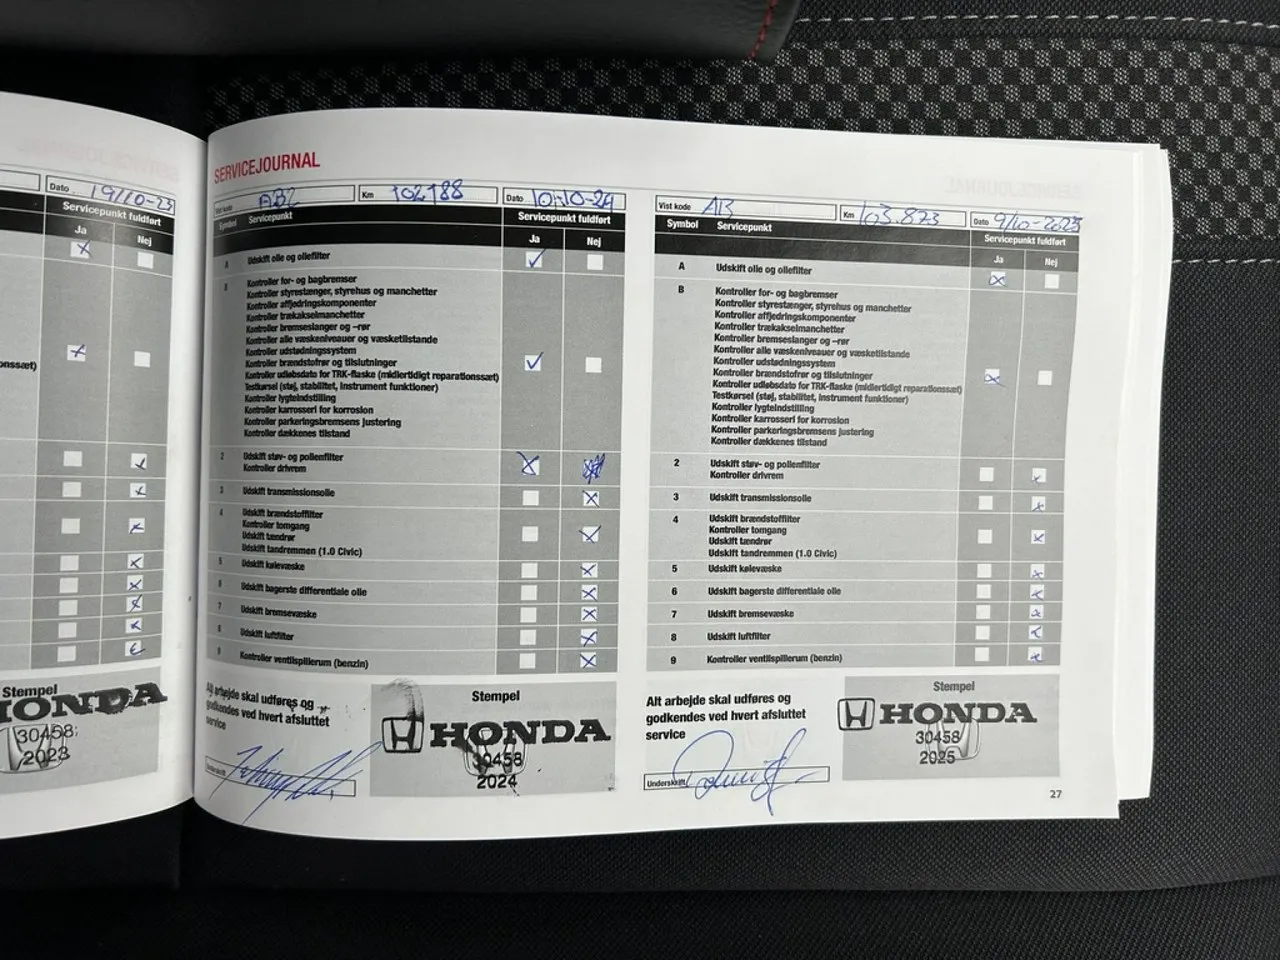 Dato 19/10-23
Servicepunkt fuldført
Ja Nej
onssæt)
Stempel
HONDA
30458
2023
SERVICEJOURNAL
Vist kode AB2 Km 102188 Dato 10-10-24
Symbol Servicepunkt Servicepunkt fuldført
Ja Nej
A Udskift olie og oliefilter
B Kontroller for- og bagbremser
Kontroller styrestænger, styrehus og manchetter
Kontroller affjedringskomponenter
Kontroller trækakselmanchetter
Kontroller bremseslanger og –rør
Kontroller alle væskeniveauer og væsketilstande
Kontroller udstødningssystem
Kontroller brændstofrør og tilslutninger
Kontroller udløbsdato for TRK-flaske (midlertidigt reparationssæt)
Testkørsel (støj, stabilitet, instrument funktioner)
Kontroller lygteindstilling
Kontroller karrosseri for korrosion
Kontroller parkeringsbremsens justering
Kontroller dækkenes tilstand
2 Udskift støv- og pollenfilter
Kontroller drivrem
3 Udskift transmissionsolie
4 Udskift brændstoffilter
Kontroller tomgang
Udskift tændrør
Udskift tandremmen (1.0 Civic)
5 Udskift kølevæske
6 Udskift bagerste differentiale olie
7 Udskift bremsevæske
8 Udskift luftfilter
9 Kontroller ventilspillerum (benzin)
Alt arbejde skal udføres og
godkendes ved hvert afsluttet
service
Underskrift
Stempel
HONDA
30458
2024
Vist kode AB Km 103.873 Dato 9/10-2025
Symbol Servicepunkt Servicepunkt fuldført
Ja Nej
A Udskift olie og oliefilter
B Kontroller for- og bagbremser
Kontroller styrestænger, styrehus og manchetter
Kontroller affjedringskomponenter
Kontroller trækakselmanchetter
Kontroller bremseslanger og –rør
Kontroller alle væskeniveauer og væsketilstande
Kontroller udstødningssystem
Kontroller brændstofrør og tilslutninger
Kontroller udløbsdato for TRK-flaske (midlertidigt reparationssæt)
Testkørsel (støj, stabilitet, instrument funktioner)
Kontroller lygteindstilling
Kontroller karrosseri for korrosion
Kontroller parkeringsbremsens justering
Kontroller dækkenes tilstand
2 Udskift støv- og pollenfilter
Kontroller drivrem
3 Udskift transmissionsolie
4 Udskift brændstoffilter
Kontroller tomgang
Udskift tændrør
Udskift tandremmen (1.0 Civic)
5 Udskift kølevæske
6 Udskift bagerste differentiale olie
7 Udskift bremsevæske
8 Udskift luftfilter
9 Kontroller ventilspillerum (benzin)
Alt arbejde skal udføres og
godkendes ved hvert afsluttet
service
Underskrift
Stempel
HONDA
30458
2025
27